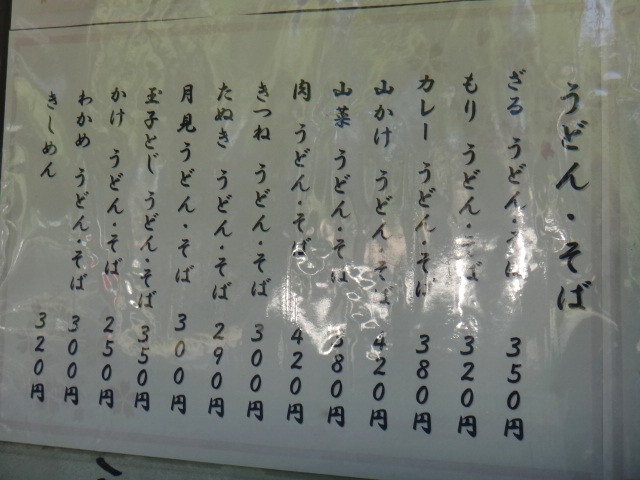 うどん・そば
ざる うどん・そば 350円
もり うどん・そば 320円
カレー うどん・そば 380円
山かけ うどん・そば 420円
山菜 うどん・そば 380円
肉 うどん・そば 420円
きつね うどん・そば 300円
たぬき うどん・そば 290円
月見うどん・そば 300円
玉子とじ うどん・そば 350円
かけ うどん・そば 250円
わかめ うどん・そば 300円
きしめん 320円